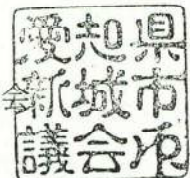 愛知県
会
新城市
議会印